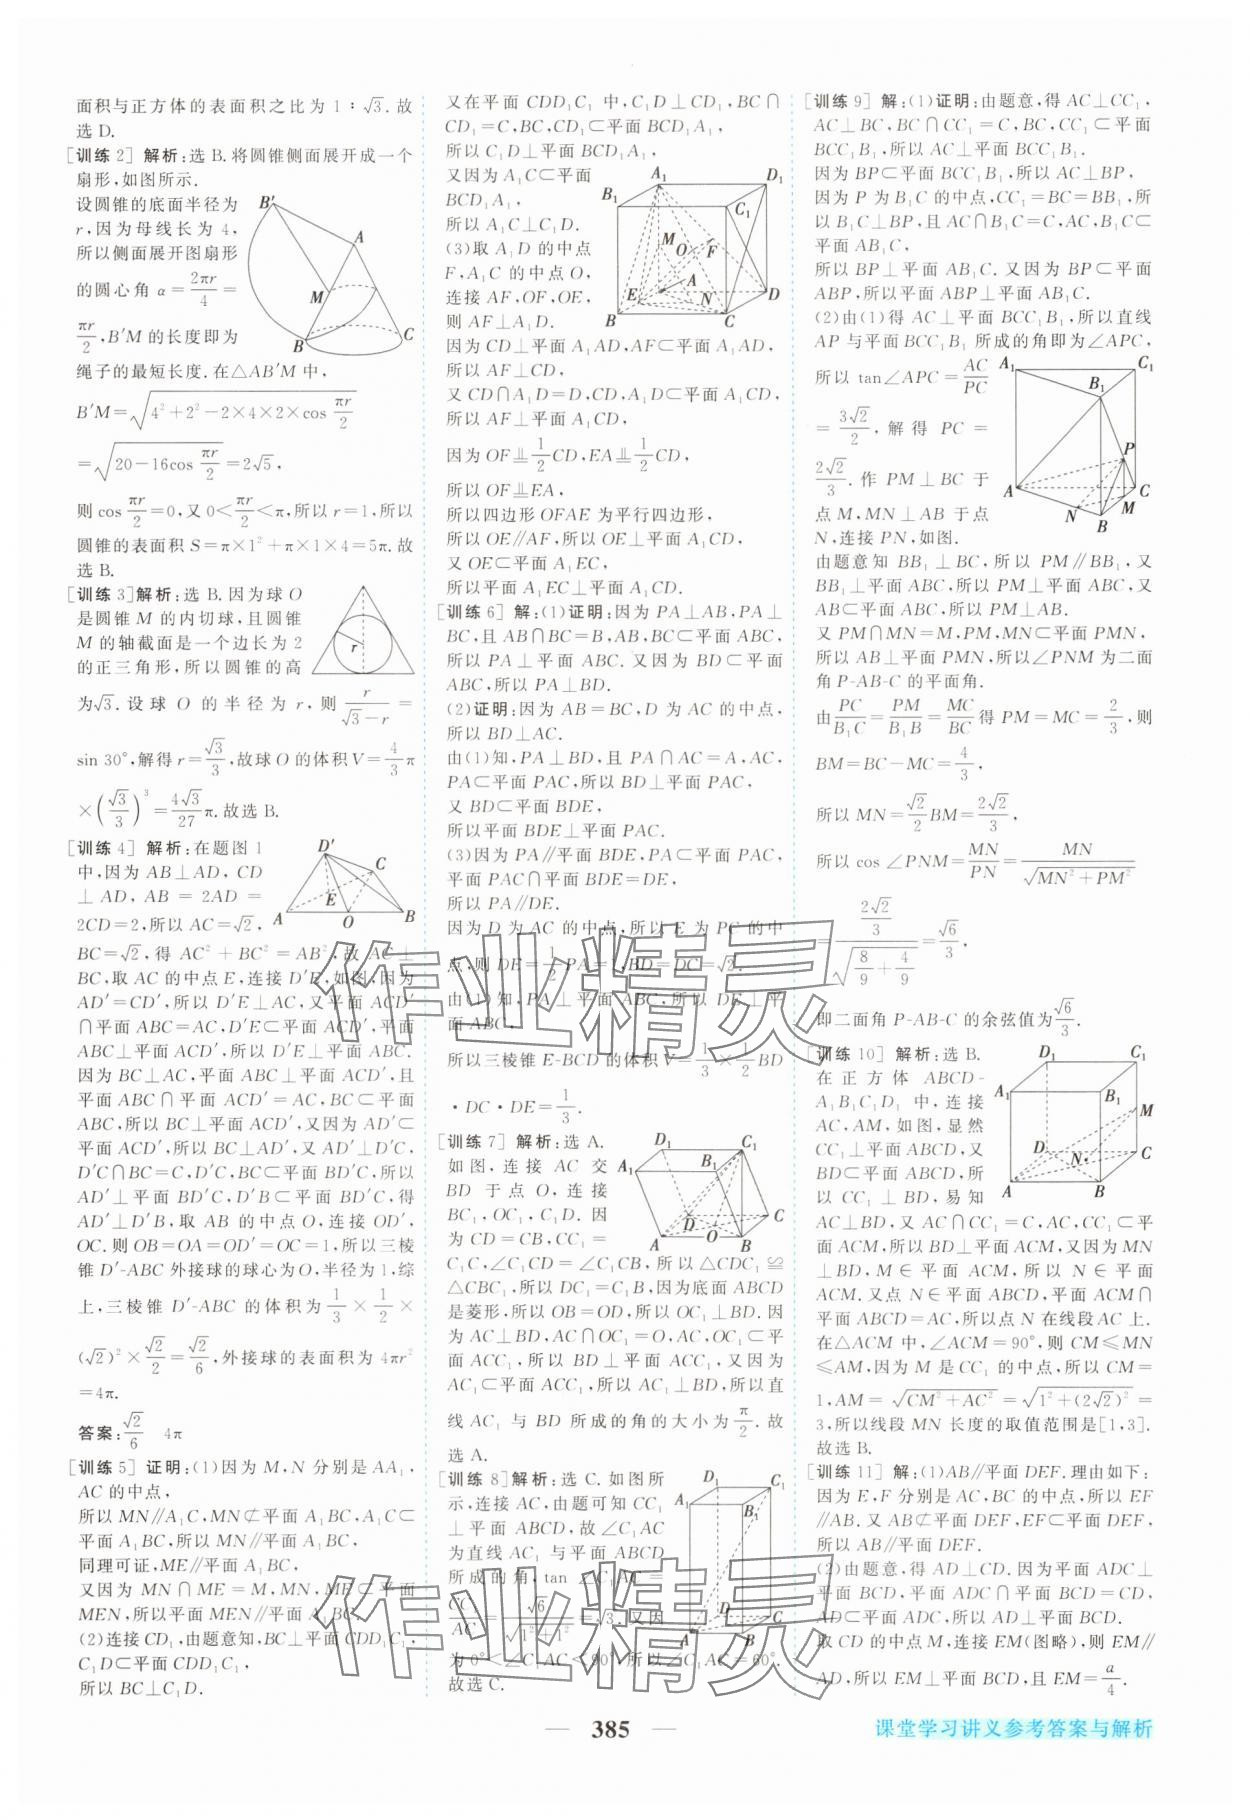 面积与正方体的表面积之比为 1∶√3. 故
选 D.
[训练 2] 解析:选 B. 将圆锥侧面展开成一个
扇形,如图所示.
设圆锥的底面半径为
r,因为母线长为 4,
所以侧面展开图扇形
的圆心角 α=2πr/4=
πr/2,B′M 的长度即为
绳子的最短长度. 在△AB′M 中,
B′M=√(4²+2²-2×4×2×cos πr/2)
=√(20-16cos πr/2)=2√5,
则 cos πr/2=0,又 0<πr/2<π,所以 r=1,所以
圆锥的表面积 S=π×1²+π×1×4=5π. 故
选 B.
[训练 3]解析:选 B. 因为球 O
是圆锥 M 的内切球,且圆锥
M 的轴截面是一个边长为 2
的正三角形,所以圆锥的高
为√3. 设球 O 的半径为 r,则 r/(√3-r)=
sin 30°,解得 r=√3/3,故球 O 的体积 V=4/3 π
×(√3/3)³=4√3/27 π. 故选 B.
[训练 4] 解析:在题图 1
中,因为 AB⊥AD,CD
⊥AD,AB=2AD=
2CD=2,所以 AC=√2,
BC=√2,得 AC²+BC²=AB²,故 AC⊥
BC,取 AC 的中点 E,连接 D′E,如图,因为
AD′=CD′,所以 D′E⊥AC,又平面 ACD′
∩平面 ABC=AC,D′E⊂平面 ACD′,平面
ABC⊥平面 ACD′,所以 D′E⊥平面 ABC.
因为 BC⊥AC,平面 ABC⊥平面 ACD′,且
平面 ABC∩平面 ACD′=AC,BC⊂平面
ABC,所以 BC⊥平面 ACD′,又因为 AD′⊂
平面 ACD′,所以 BC⊥AD′,又 AD′⊥D′C,
D′C∩BC=C,D′C,BC⊂平面 BD′C,所以
AD′⊥平面 BD′C,D′B⊂平面 BD′C,得
AD′⊥D′B,取 AB 的中点 O,连接 OD′,
OC. 则 OB=OA=OD′=OC=1,所以三棱
锥 D′-ABC 外接球的球心为 O,半径为 1,综
上,三棱锥 D′-ABC 的体积为 1/3×1/2×
(√2)²×√2/2=√2/6,外接球的表面积为 4πr²
=4π.
答案:√2/6 4π
[训练 5] 证明:(1)因为 M,N 分别是 AA₁,
AC 的中点,
所以 MN∥A₁C,MN⊄平面 A₁BC,A₁C⊂
平面 A₁BC,所以 MN∥平面 A₁BC,
同理可证,ME∥平面 A₁BC,
又因为 MN∩ME=M,MN,ME⊂平面
MEN,所以平面 MEN∥平面 A₁BC.
(2)连接 CD₁,由题意知,BC⊥平面 CDD₁C₁,
C₁D⊂平面 CDD₁C₁,
所以 BC⊥C₁D.
又在平面 CDD₁C₁ 中,C₁D⊥CD₁,BC∩
CD₁=C,BC,CD₁⊂平面 BCD₁A₁,
所以 C₁D⊥平面 BCD₁A₁,
又因为 A₁C⊂平面
BCD₁A₁,
所以 A₁C⊥C₁D.
(3)取 A₁D 的中点
F,A₁C 的中点 O,
连接 AF,OF,OE,
则 AF⊥A₁D.
因为 CD⊥平面 A₁AD,AF⊂平面 A₁AD,
所以 AF⊥CD,
又 CD∩A₁D=D,CD,A₁D⊂平面 A₁CD,
所以 AF⊥平面 A₁CD,
因为 OF⫫1/2 CD,EA⫫1/2 CD,
所以 OF⫫EA,
所以四边形 OFAE 为平行四边形,
所以 OE∥AF,所以 OE⊥平面 A₁CD,
又 OE⊂平面 A₁EC,
所以平面 A₁EC⊥平面 A₁CD.
[训练 6] 解:(1)证明:因为 PA⊥AB,PA⊥
BC,且 AB∩BC=B,AB,BC⊂平面 ABC,
所以 PA⊥平面 ABC. 又因为 BD⊂平面
ABC,所以 PA⊥BD.
(2)证明:因为 AB=BC,D 为 AC 的中点,
所以 BD⊥AC.
由(1)知,PA⊥BD,且 PA∩AC=A,AC,
PA⊂平面 PAC,所以 BD⊥平面 PAC,
又 BD⊂平面 BDE,
所以平面 BDE⊥平面 PAC.
(3)因为 PA∥平面 BDE,PA⊂平面 PAC,
平面 PAC∩平面 BDE=DE,
所以 PA∥DE.
因为 D 为 AC 的中点,所以 E 为 PC 的中
点,则 DE=1/2 PA=1,BD=DC=√2.
由(1)知,PA⊥平面 ABC,所以 DE⊥平
面 ABC,
所以三棱锥 E-BCD 的体积 V=1/3×1/2 BD
·DC·DE=1/3.
[训练 7] 解析:选 A.
如图,连接 AC 交
BD 于点 O,连接
BC₁,OC₁,C₁D. 因
为 CD=CB,CC₁=
C₁C,∠C₁CD=∠C₁CB,所以△CDC₁≌
△CBC₁,所以 DC₁=C₁B,因为底面 ABCD
是菱形,所以 OB=OD,所以 OC₁⊥BD. 因
为 AC⊥BD,AC∩OC₁=O,AC,OC₁⊂平
面 ACC₁,所以 BD⊥平面 ACC₁,又因为
AC₁⊂平面 ACC₁,所以 AC₁⊥BD,所以直
线 AC₁ 与 BD 所成的角的大小为 π/2. 故
选 A.
[训练 8]解析:选 C. 如图所
示,连接 AC,由题可知 CC₁
⊥平面 ABCD,故∠C₁AC
为直线 AC₁ 与平面 ABCD
所成的角,tan∠C₁AC=
CC₁/AC=√6/√(1²+1²)=√3. 又因
为 0°<∠C₁AC<90°,所以∠C₁AC=60°.
故选 C.
[训练 9] 解:(1)证明:由题意,得 AC⊥CC₁,
AC⊥BC,BC∩CC₁=C,BC,CC₁⊂平面
BCC₁B₁,所以 AC⊥平面 BCC₁B₁.
因为 BP⊂平面 BCC₁B₁,所以 AC⊥BP,
因为 P 为 B₁C 的中点,CC₁=BC=BB₁,所
以 B₁C⊥BP,且 AC∩B₁C=C,AC,B₁C⊂
平面 AB₁C,
所以 BP⊥平面 AB₁C. 又因为 BP⊂平面
ABP,所以平面 ABP⊥平面 AB₁C.
(2)由(1)得 AC⊥平面 BCC₁B₁,所以直线
AP 与平面 BCC₁B₁ 所成的角即为∠APC,
所以 tan∠APC=AC/PC
=3√2/2,解得 PC=
2√2/3. 作 PM⊥BC 于
点 M,MN⊥AB 于点
N,连接 PN,如图.
由题意知 BB₁⊥BC,所以 PM∥BB₁,又
BB₁⊥平面 ABC,所以 PM⊥平面 ABC,又
AB⊂平面 ABC,所以 PM⊥AB.
又 PM∩MN=M,PM,MN⊂平面 PMN,
所以 AB⊥平面 PMN,所以∠PNM 为二面
角 P-AB-C 的平面角.
由 PC/B₁C=PM/B₁B=MC/BC 得 PM=MC=2/3,则
BM=BC-MC=4/3,
所以 MN=√2/2 BM=2√2/3,
所以 cos∠PNM=MN/PN=MN/√(MN²+PM²)
=(2√2/3)/√(8/9+4/9)=√6/3,
即二面角 P-AB-C 的余弦值为√6/3.
[训练 10] 解析:选 B.
在正方体 ABCD-
A₁B₁C₁D₁ 中,连接
AC,AM,如图,显然
CC₁⊥平面 ABCD,又
BD⊂平面 ABCD,所
以 CC₁⊥BD,易知
AC⊥BD,又 AC∩CC₁=C,AC,CC₁⊂平
面 ACM,所以 BD⊥平面 ACM,又因为 MN
⊥BD,M∈平面 ACM,所以 N∈平面
ACM. 又点 N∈平面 ABCD,平面 ACM∩
平面 ABCD=AC,所以点 N 在线段 AC 上.
在△ACM 中,∠ACM=90°,则 CM≤MN
≤AM,因为 M 是 CC₁ 的中点,所以 CM=
1,AM=√(CM²+AC²)=√(1²+(2√2)²)=
3,所以线段 MN 长度的取值范围是[1,3].
故选 B.
[训练 11] 解:(1)AB∥平面 DEF. 理由如下:
因为 E,F 分别是 AC,BC 的中点,所以 EF
∥AB. 又 AB⊄平面 DEF,EF⊂平面 DEF,
所以 AB∥平面 DEF.
(2)由题意,得 AD⊥CD. 因为平面 ADC⊥
平面 BCD,平面 ADC∩平面 BCD=CD,
AD⊂平面 ADC,所以 AD⊥平面 BCD.
取 CD 的中点 M,连接 EM(图略),则 EM∥
AD,所以 EM⊥平面 BCD,且 EM=a/4.
— 385 —
课堂学习讲义参考答案与解析
作业精灵
作业精灵